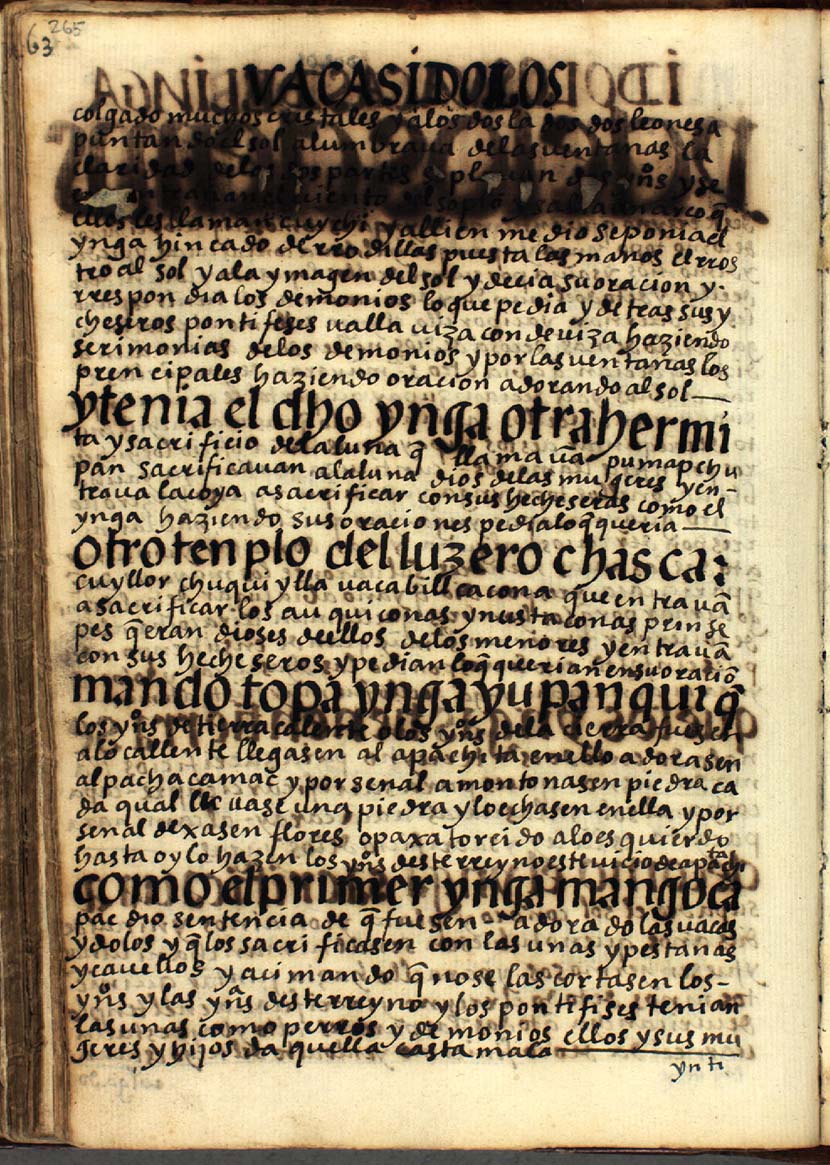 265
63
VACAS ÍDOLOS
colgado muchos cristales y a los dos lados dos leones a
puntando el sol alumbrava de las ventanas la
claridad de los dos partes soplavan dos yṉs y se
entravan el viento del soplo y salia un arco q̃
ellos les llaman cuychi y alli en medio se ponia el
ynga hincado de rrodillas puesta las manos el rros
tro al sol y a la ymagen del sol y decia su oracion y
rrespondia los demonios lo que pedia y detras sus y
cheseros pontifeses valla viza conde viza haziendo
serimonias de los demonios y por las ventanas los
prencipales haziendo oracion adorando al sol
y tenia el dho ynga otra hermi
ta y sacrificio de la luna q̃ llamavã pumap chu
pan sacrificavan a la luna dios de las mugeres y en-
trava la coya a sacrificar con sus hecheseras como el
ynga haziendo sus oraciones pedia lo q̃ queria
otro tenplo del luzero chasca:
cuyllor chuqui ylla uaca billcacona que entravã
a sacrificar los auquiconas y nustaconas prinse
pes q̃ eran dioses dellos de los menores y entravã
con sus hecheseros y pedian lo q̃ querian en su oraciõ
mando topa ynga yupanqui q̃
los yṉs de tierra calente o los yṉs de la cierra fuesen
a lo callente llegasen al apachita en ello adorasen
al pachacamac y por senal amontonasen piedra ca
da qual llevase una piedra y lo echasen en ella y por
senal dexasen flores o paxa torcido a lo esquierdo
hasta oy lo hazen los yṉs deste rreyno este vicio de apachi
ta
como el primer ynga mango ca
pac dio sentencia de q̃ fuesen adorado las uacas
ydolos y q̃ los sacrificasen con las unas y pestanas
y cavellos y aci mando q̃ no se las cortasen los-
yṉs y las yṉs deste rreyno y los pontifises tenian
las unas como perros y demonios ellos y sus mu
geres y hijos da quella casta mala
ynti